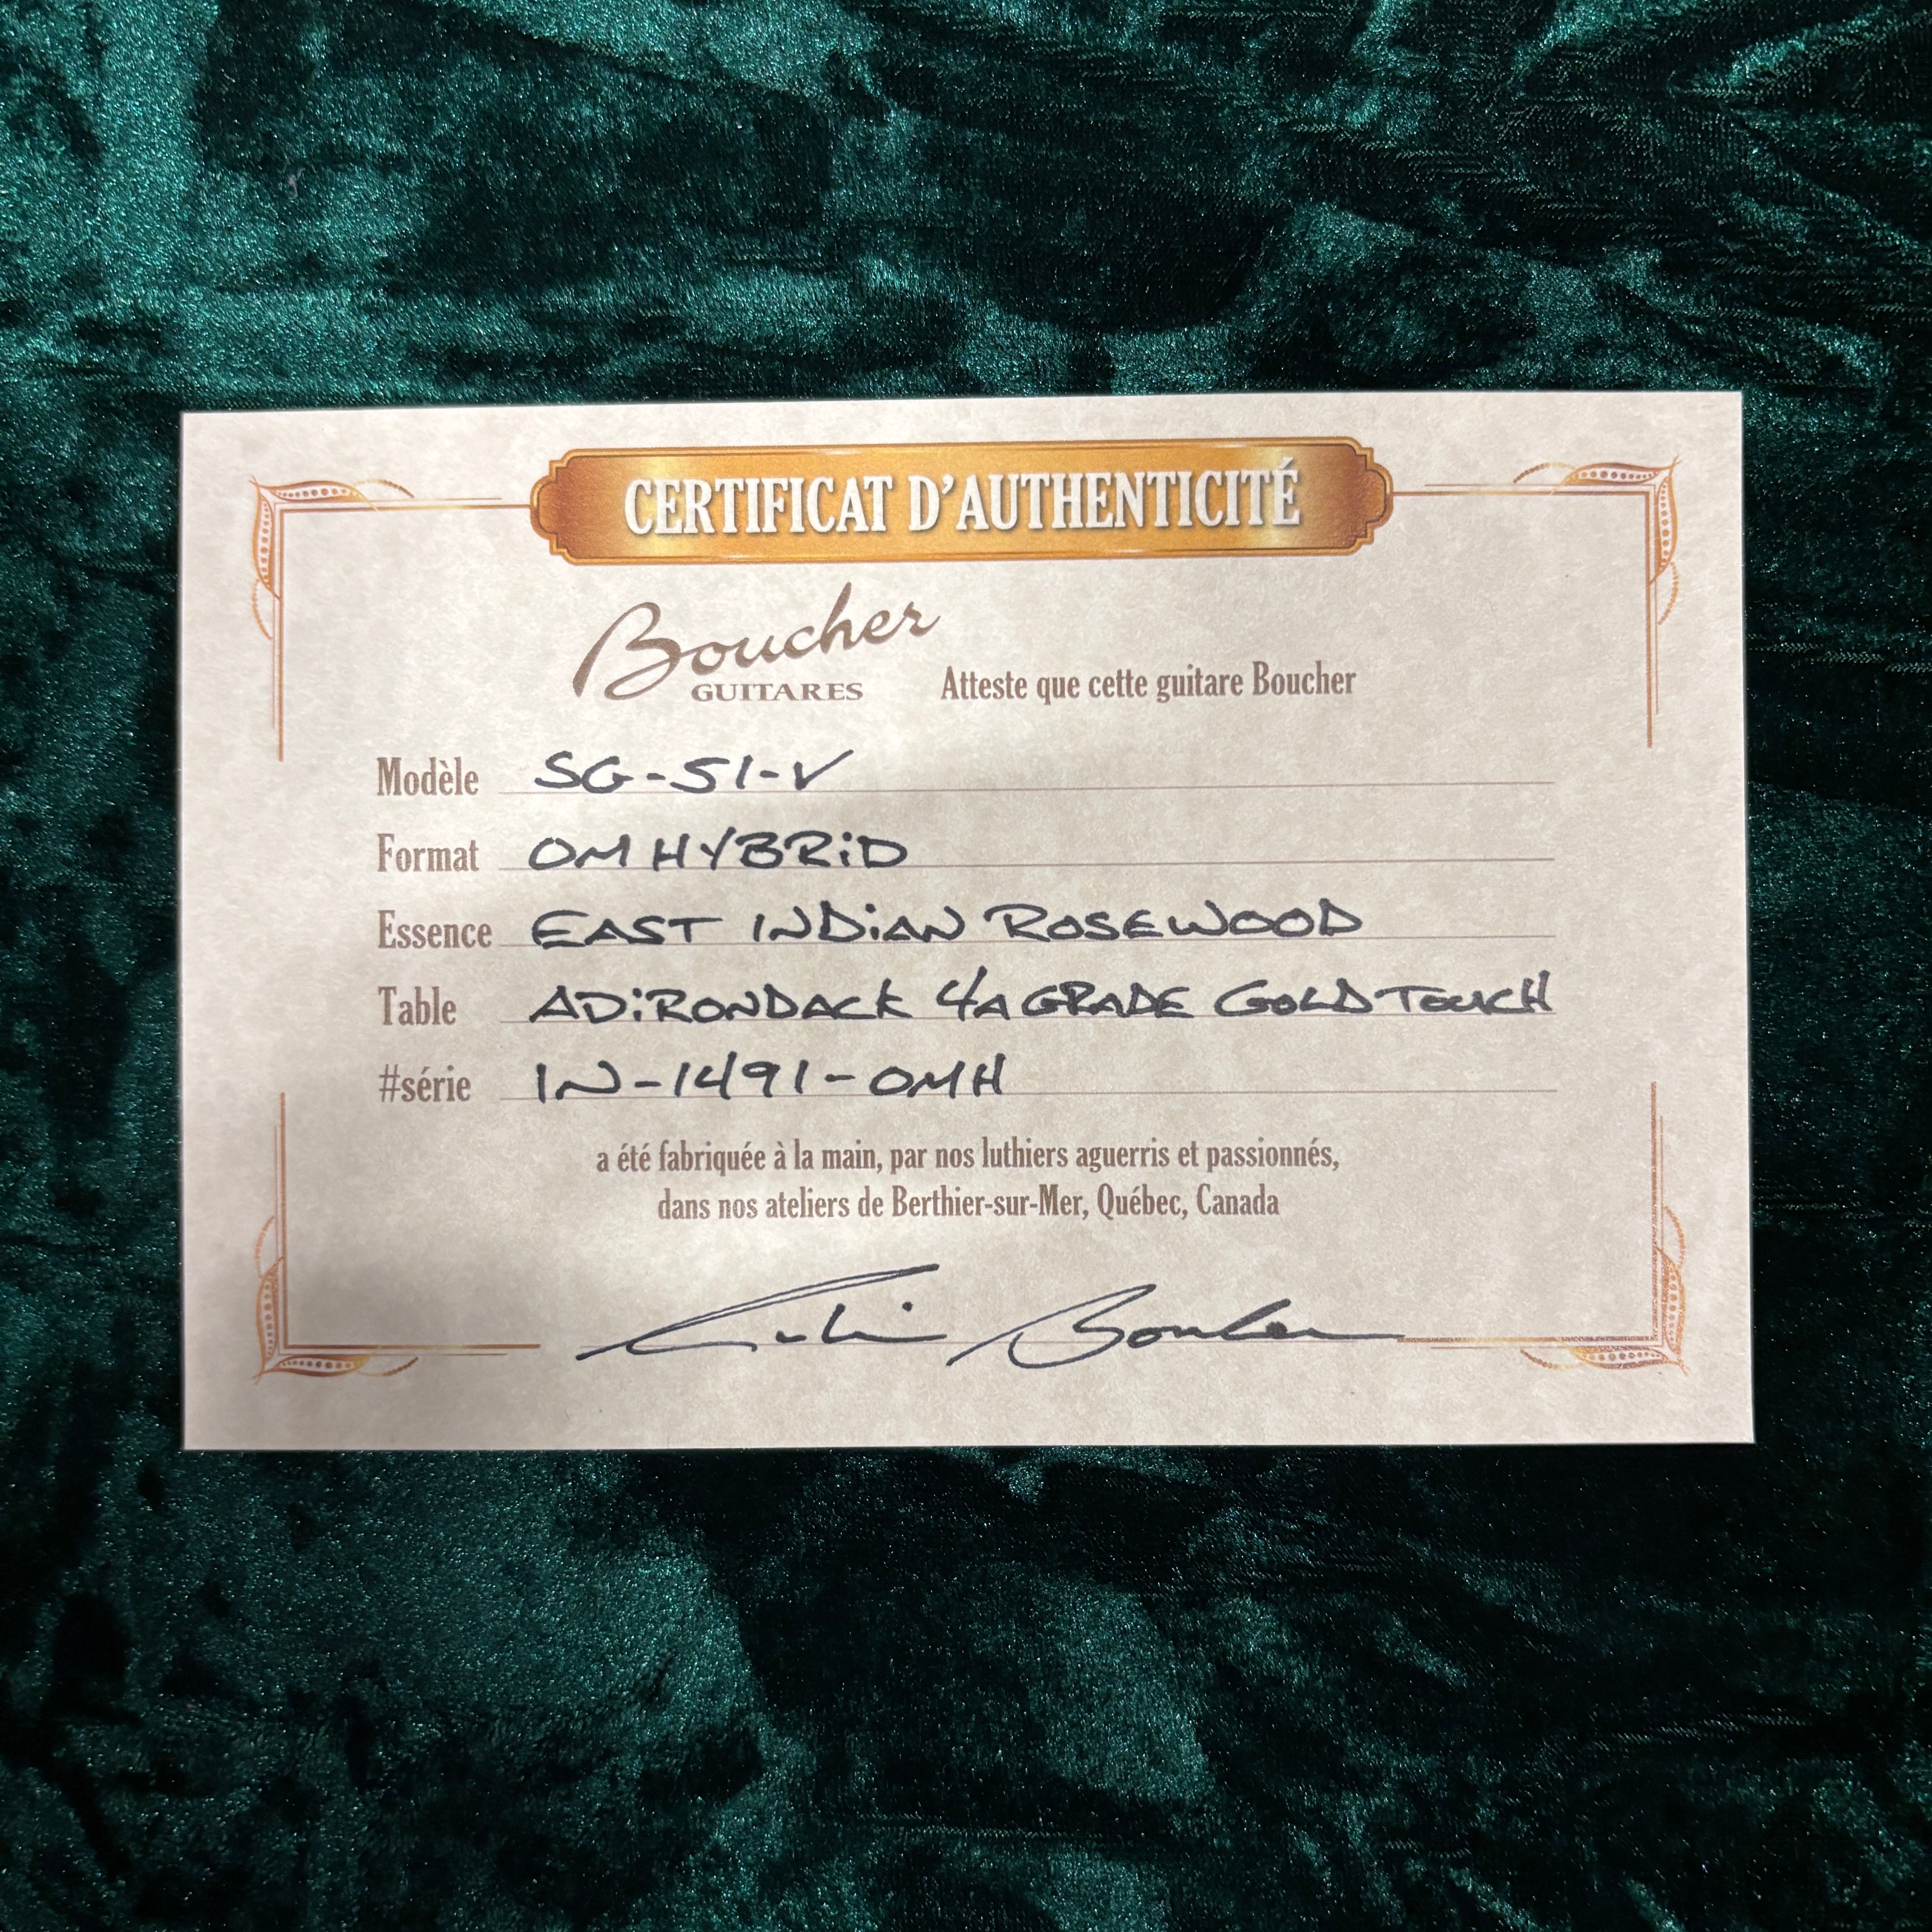 CERTIFICAT D'AUTHENTICITÉ
Boucher
GUITARES
Atteste que cette guitare Boucher
Modèle SG-51-V
Format OM HYBRiD
Essence EAST INDiAN ROSEWOOD
Table ADiRONDACK 4A GRADE GOLD TOUCH
#série IN-1491-OMH
a été fabriquée à la main, par nos luthiers aguerris et passionnés,
dans nos ateliers de Berthier-sur-Mer, Québec, Canada
Boucher